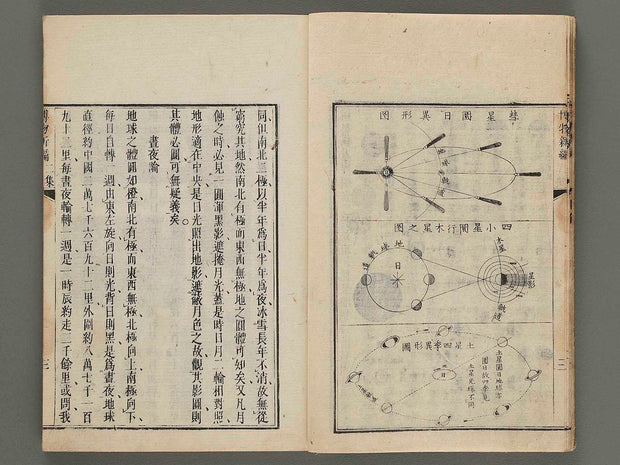 彗星圜日異形圖
地球軌道
四小星圜行木星之圖
木星
星影
日
地球軌道
土星四季異形圖
土星圜日地球亦
圜日故四季見
土星光環不同
日
同但南北二極以半年爲日半年爲夜冰雪長年不消故無從
窮究其地然南北有極而東西無極地之圓體可知矣又凡月
蝕之時必見一圓渾黑影遮掩月光蓋是時日月二輪相對照
地形適在中央是日光照出地影遮蔽月色之故觀其影圓則
其體必圓可無疑義矣
晝夜論
地球之體圓如橙南北有極而東西無極北極向上南極向下
每日自轉一週由東左旋向日則光背日則黑是爲晝夜地球
直徑約中國二萬七千六百九十二里外圍約八萬七千一百
九十二里每晝夜輪轉一週是一時辰約走七千餘里或問我
博物新編
一集
三